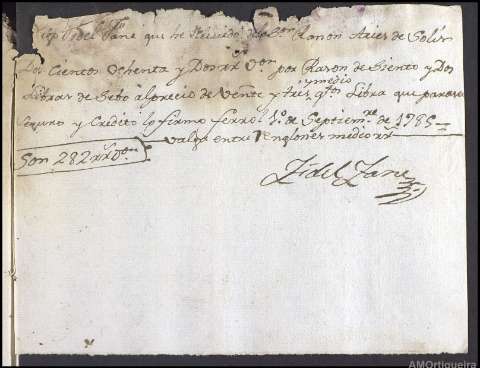 Digo Fidel Jane que he Recivido del Sr. Ramon Aries de Solis
Dos Cientos Ochenta y Dos rr Von por Razon de Siento y Dos
y medio
Libras de Sebo al precio de Vente y tres qtos Libra que para su
seguro y Credito lo firmo ferrol 1º de Septiemre de 1785
Valga entre Renglones medio
Son 282 rr Von
Fidel Jane
AMOrtigueira